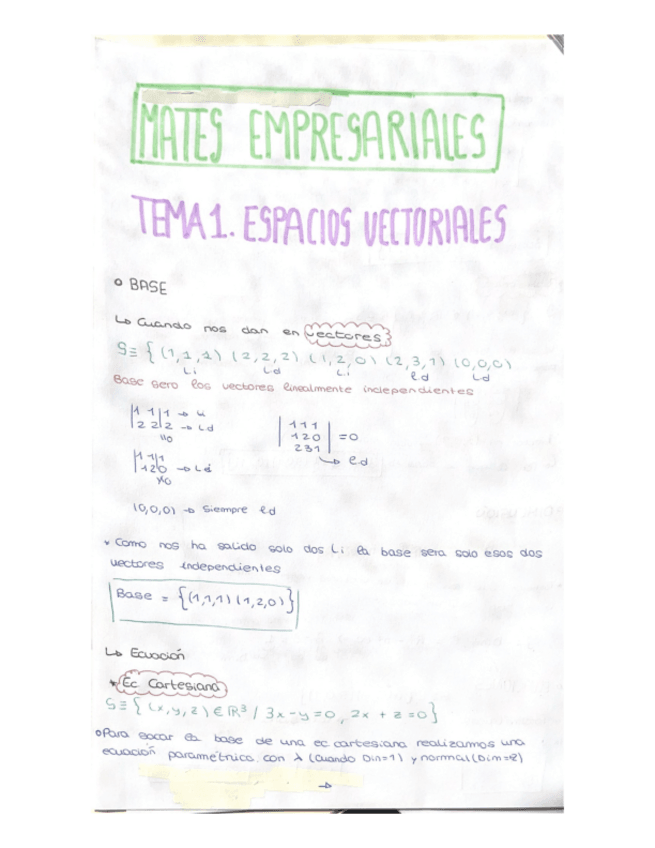 MATES EMPRESARIALES
TEMA 1. ESPACIOS VECTORIALES
o BASE
↳ Cuando nos dan en vectores
S≡ { (1,1,1) (2,2,2) (1,2,0) (2,3,1) (0,0,0)
Li Ld Li ld Ld
Base sero los vectores linealmente independientes
|1 1|1 → Li
|2 2|2 → Ld
110
|1 1|1
|1 2|0 → Ld
|1 1 1|
|1 2 0| =0
|2 3 1|
↳ ld
(0,0,0) → Siempre ld
* Como nos ha salido solo dos Li la base sera solo esos dos
vectores independientes
Base = {(1,1,1) (1,2,0)}
↳ Ecuación
* Ec Cartesiana
S≡ { (x,y,z) ∈ ℝ³ / 3x-y=0, 2x+z=0}
oPara sacar la base de una ec. cartesiana realizamos una
ecuación paramétrica con λ (Cuando Dim=1) y normal (Dim=2)
→